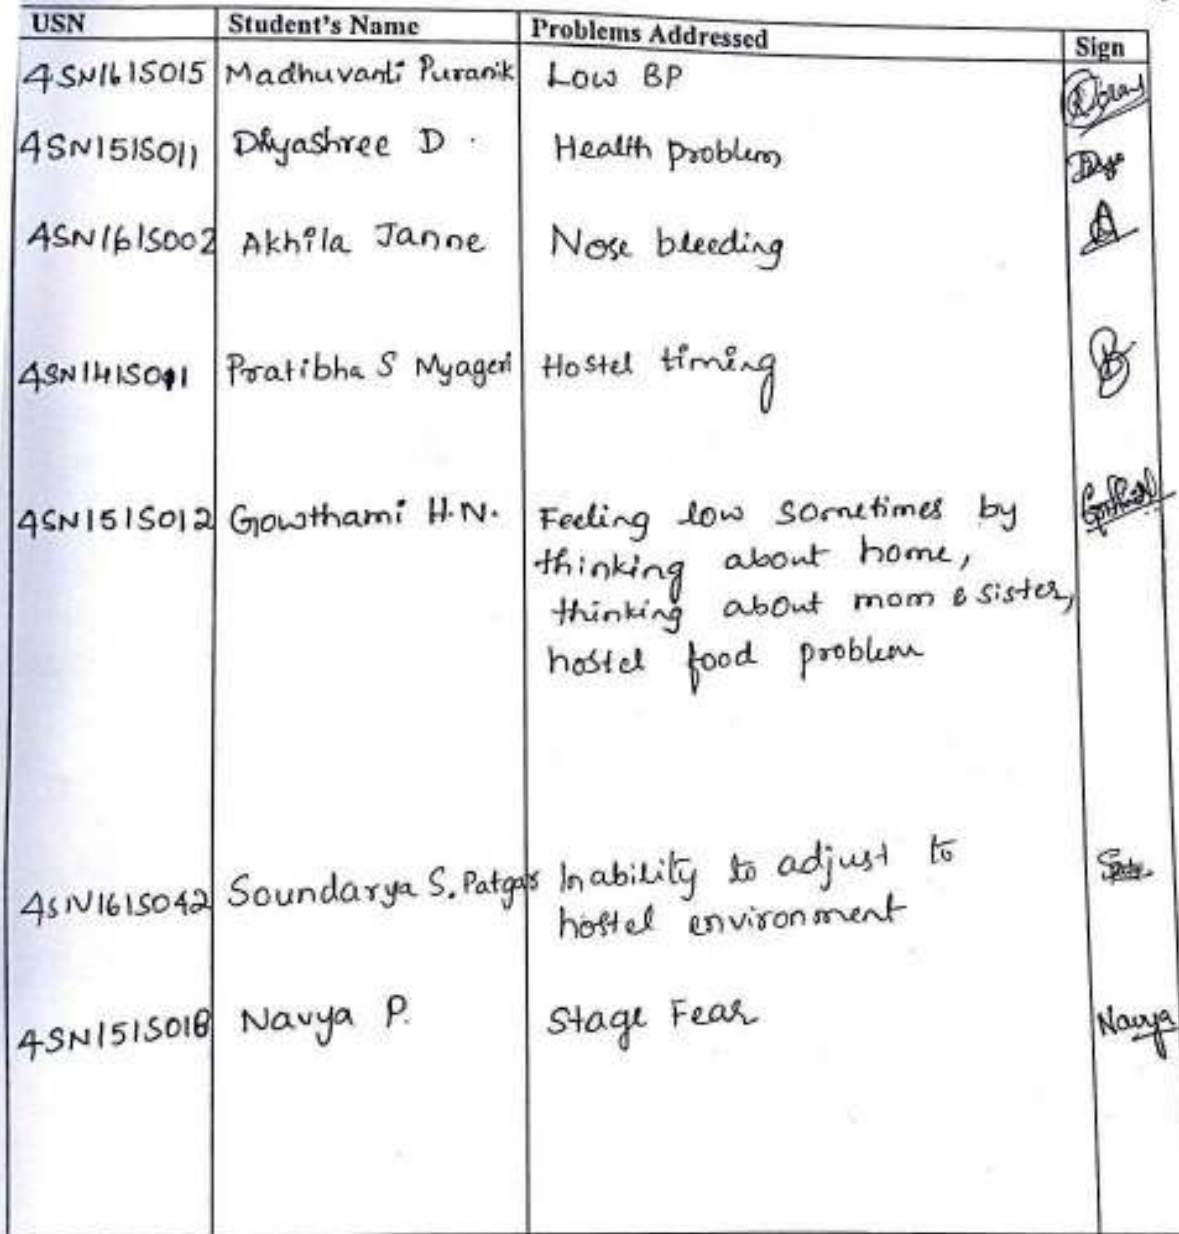 USN Student's Name Problems Addressed Sign
4SN16IS015 Madhuvanti Puranik Low BP
4SN15IS011 Dhyashree D. Health problem
4SN16IS002 Akhila Janne Nose bleeding
4SN14IS011 Pratibha S Myageri Hostel timing
4SN15IS012 Gowthami H.N. Feeling low sometimes by
thinking about home,
thinking about mom & sister,
hostel food problem
4SN16IS042 Soundarya S. Patgar Inability to adjust to
hostel environment
4SN15IS018 Navya P. Stage Fear Navya